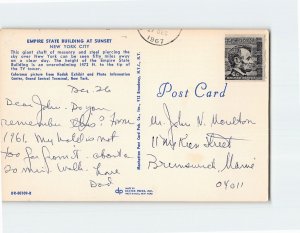 EMPIRE STATE BUILDING AT SUNSET
NEW YORK CITY
This giant shaft of masonry and steel piercing the
sky over New York can be seen fifty miles away
on a clear day. The height of the Empire State
Building is an overwhelming 1472 ft. to the tip of
the TV tower.
Colorama picture from Kodak Exhibit and Photo Information
Center, Grand Central Terminal, New York.
Dec. 26
Dear John. Do you
remember this? From
1961. My hotel is not
too far from it. about a
20 min. Walk. Love
Dad
DR-80109-B
DEXTER PRESS, INC.
1967
Post Card
Mr. John N. Moulton
11 McKeen Street
Brunswick, Maine
04011